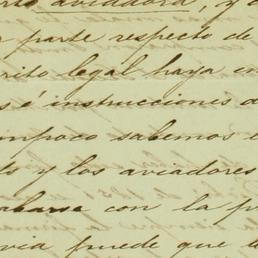 aviadora, y
parte respecto de
rito legal haya en
sé instrucciones a
mpoco sabemos e
s y los aviadores
darse con la p
via puede que